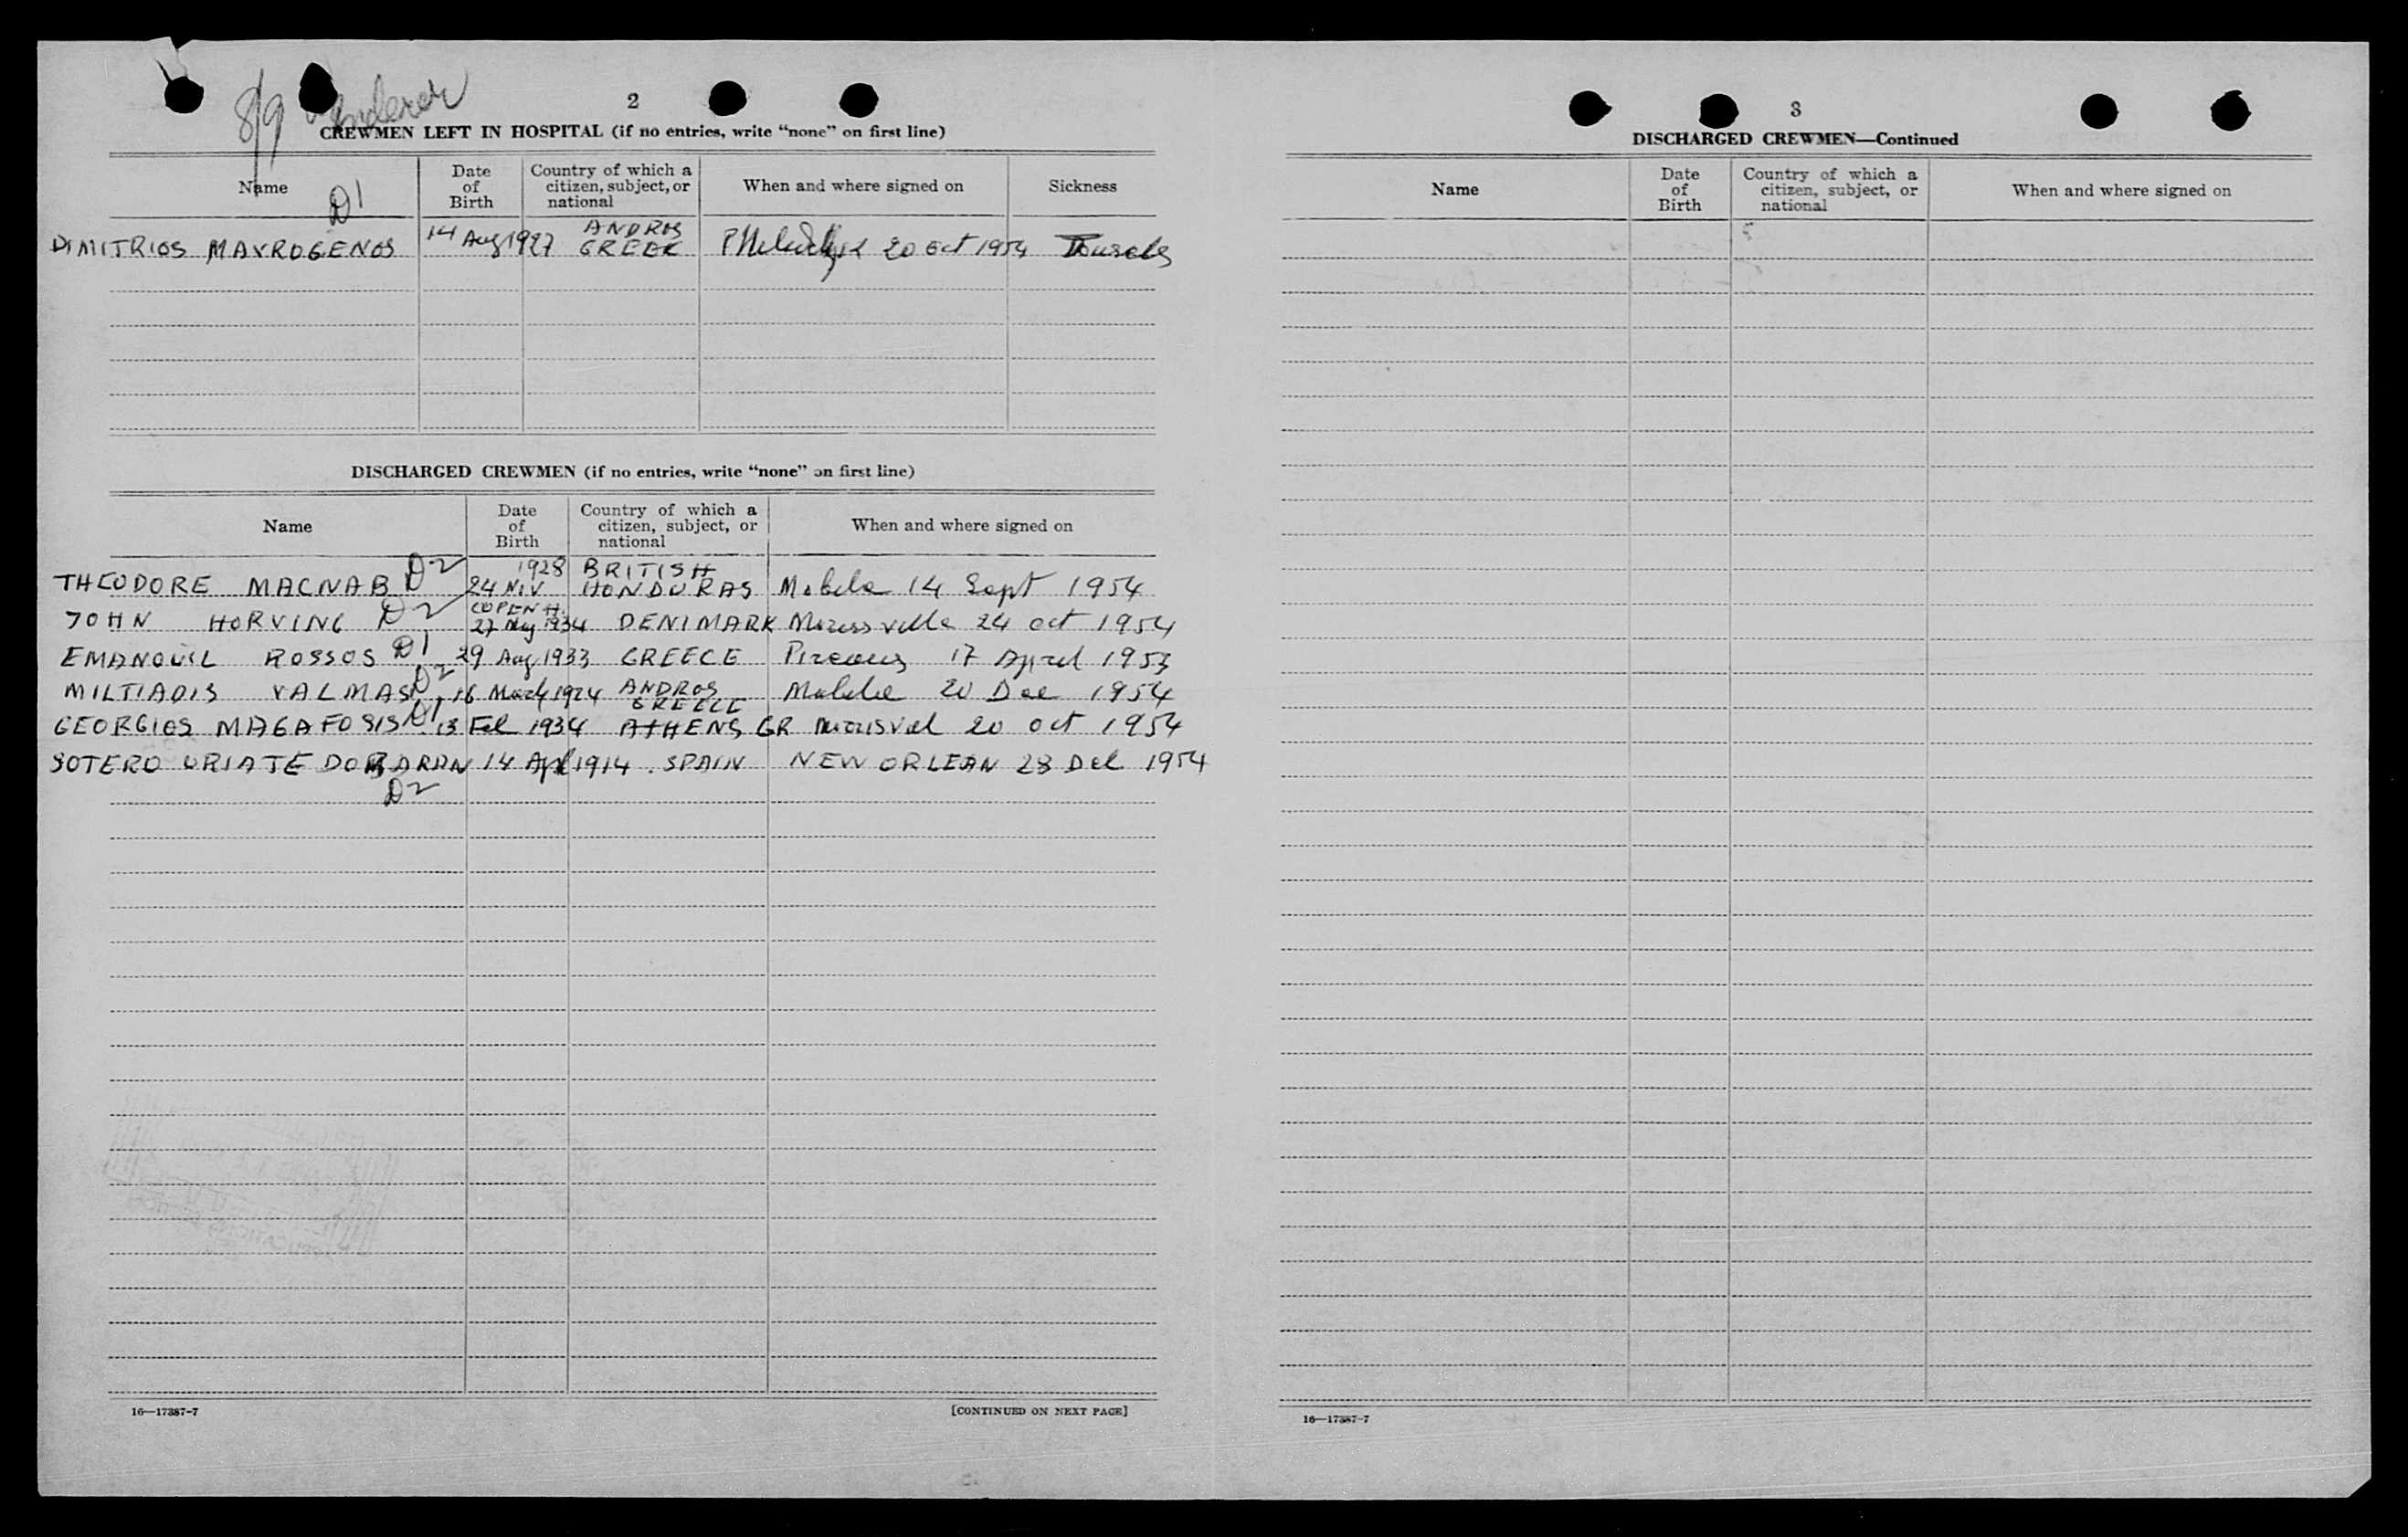 2
8/9
CREWMEN LEFT IN HOSPITAL (if no entries, write “none” on first line)
Name
Date of Birth
Country of which a citizen, subject, or national
When and where signed on
Sickness
D1
DIMITRIOS MAVROGENOS 14 Aug 1927 ANDROS GREEK 20 oct 1954
DISCHARGED CREWMEN (if no entries, write “none” on first line)
Name
Date of Birth
Country of which a citizen, subject, or national
When and where signed on
THEODORE MACNAB D2 24 Nov 1928 BRITISH HONDURAS Mobile 14 Sept 1954
JOHN HORVING D2 COPENH. 27 1934 DENIMARK 24 oct 1954
EMANOUIL ROSSOS D1 29 Aug 1933 GREECE Pireous 17 April 1953
MILTIADIS VALMAS D2 16 March 1924 ANDROS GREECE 20 Dec 1954
GEORGIOS MAGAFOSIS D1 13 Feb 1934 ATHENS GR 20 oct 1954
SOTERO URIATE 14 Apl 1914 SPAIN NEW ORLEAN 28 Dec 1954
D2
16—17387-7
[CONTINUED ON NEXT PAGE]
3
DISCHARGED CREWMEN—Continued
Name
Date of Birth
Country of which a citizen, subject, or national
When and where signed on
16—17387-7